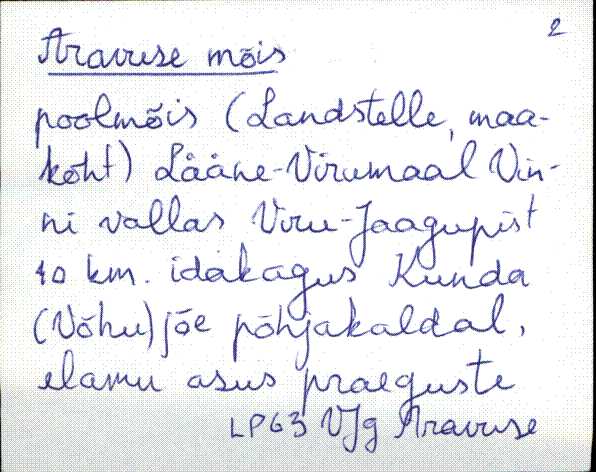 2
Aravuse mõis
poolmõis (Landstelle, maa-
koht) Lääne-Virumaal Vin-
ni vallas Viru-Jaagupist
10 km. idakagus Kunda
(Võhu) jõe põhjakaldal,
elamu asus praeguste
LPG3 VJg Aravuse